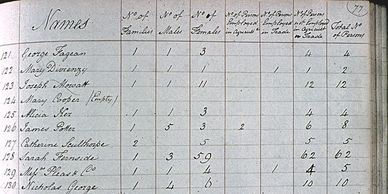 Names No. of Families No. of Males No. of Females No. of Persons Employed in Agricult. No. of Persons Employed in Trade No. of Persons not Employed in Agricult. or Trade Total No. of Persons
121 George Fagean 1 3 4 4
122 Mary Divienzy 1 1 1 2
123 Joseph Mowatt 1 1 11 12 12
124 Mary Cooper (Empty)
125 Alicia Hex 1 1 3 4 4
126 James Potter 1 5 3 2 6 8
127 Catherine Sculthorpe 2 5 5 5
128 Sarah Fernside 1 3 59 62 62
129 Messrs. Pleas & Co. 1 1 4 1 4 5
130 Nicholas George 1 4 6 10 10